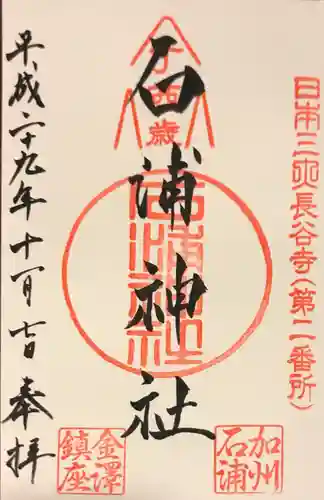 日本三大長谷寺(第二番所)
石浦神社
石浦神社
酉歳
加州
石浦
金澤
鎮座
平成二十九年十一月七日奉拝